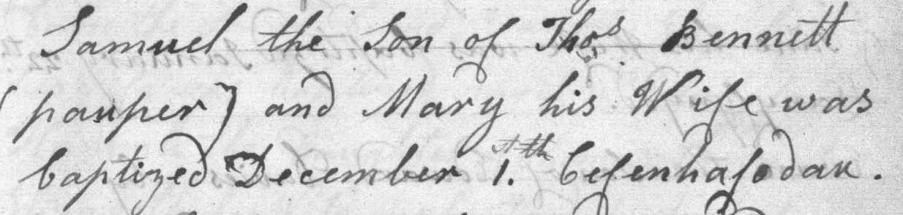 Samuel the Son of Thos Bennett
(pauper) and Mary his Wife was
baptized December 1.th